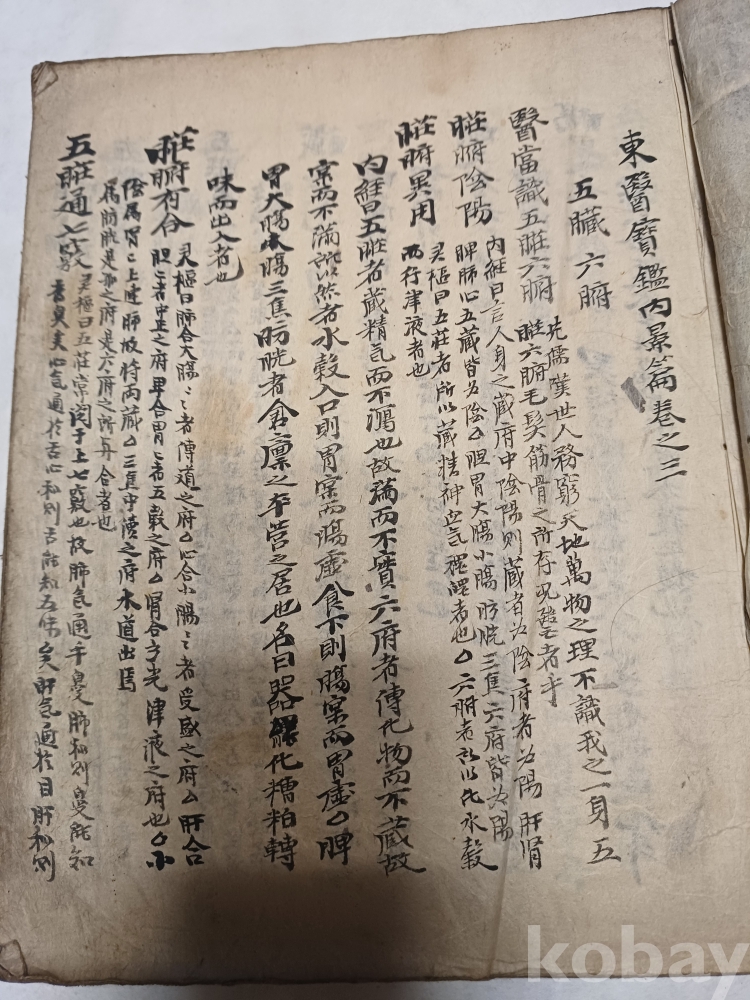 東醫寶鑑內景篇卷之三
五臟六腑
醫當識五脏六腑
先儒嘆世人務窮天地萬物之理不識我之一身五
脏六腑毛髮筋骨之所存況醫者乎
脏腑陰陽
內經曰言人身之蔵府中陰陽則蔵者為陰府者為陽肝腎
脾肺心五蔵皆為陰胆胃大膓小膓膀胱三焦六府皆為陽
脏腑異用
灵樞曰五蔵者所以蔵精神血气魂魄者也六腑者所以化水穀
而行津液者也
內經曰五脏者蔵精气而不瀉也故满而不實六府者傳化物而不蔵故
實而不滿所以然者水穀入口則胃實而膓虛食下則膓實而胃虛脾
胃大膓小膓三焦膀胱者倉廪之本营之居也名曰器能化糟粕轉
味而出入者也
脏腑有合
灵樞曰肺合大膓〻〻者傳道之府心合小膓〻〻者受盛之府肝合
胆〻者中正之府脾合胃〻者五穀之府腎合膀光津液之府也小
陰属腎〻上連肺故將两蔵三焦中瀆之府水道出焉
属膀胱是孤之府是六府之所与合者也
五脏通七竅
灵樞曰五蔵常阅于上七竅也故肺气通于鼻肺和則鼻能知
香臭矣心气通於舌心和則舌能知五味矣肝气通於目肝和則
kobay